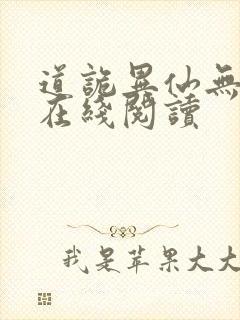 道詭異仙無
在綫閱讀
我是苹果大大